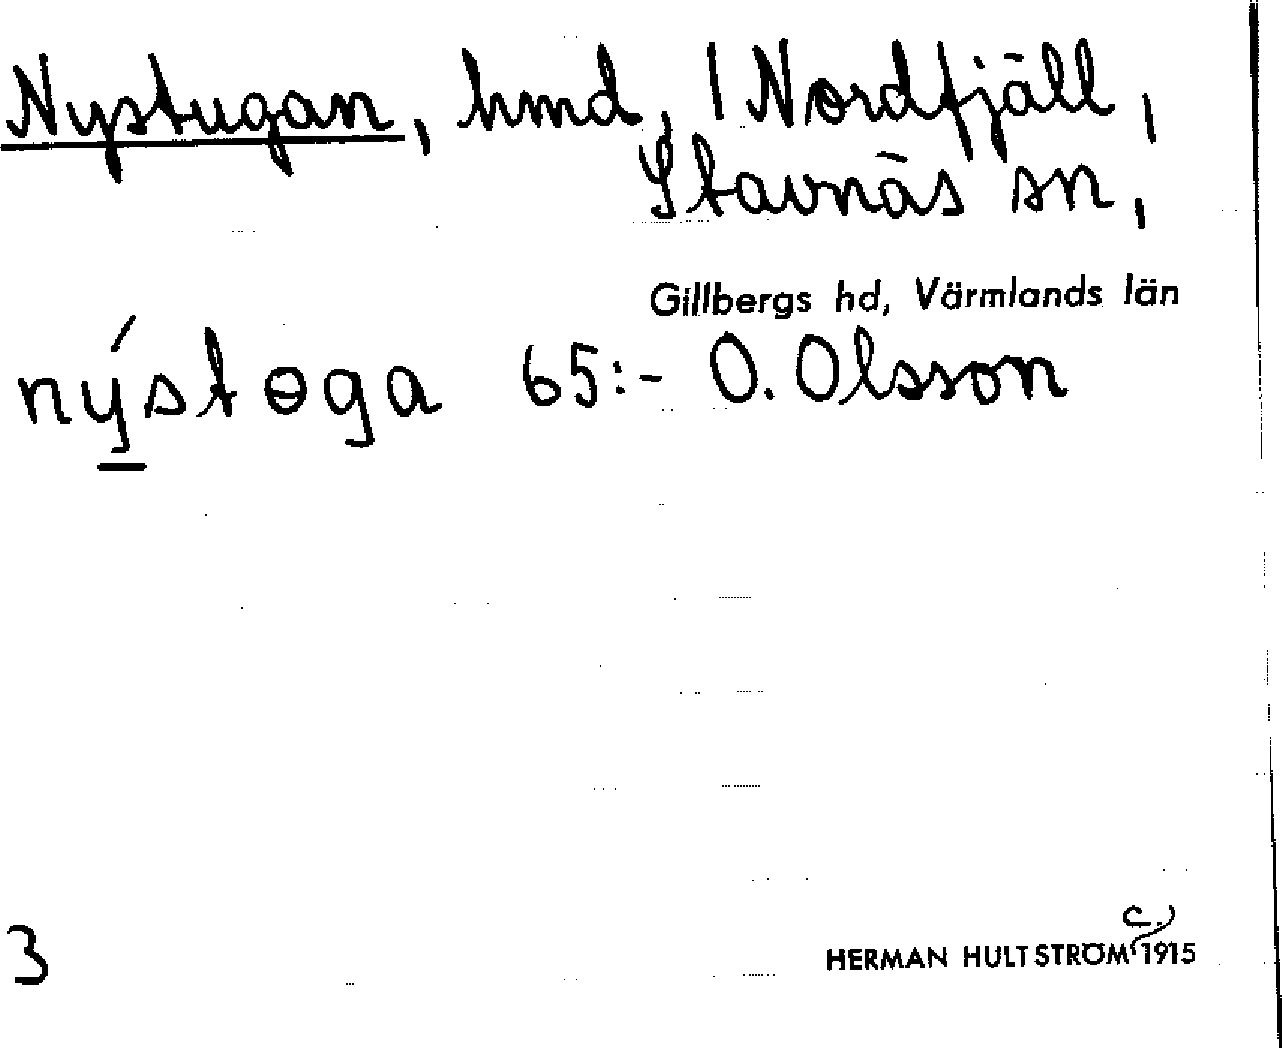 Nystugan, hmd, 1 Nordfjäll,
Stavnäs sn,
Gillbergs hd, Värmlands län
nýstɵga 65:- O. Olsson
3
HERMAN HULTSTRÖM (c.) 1915